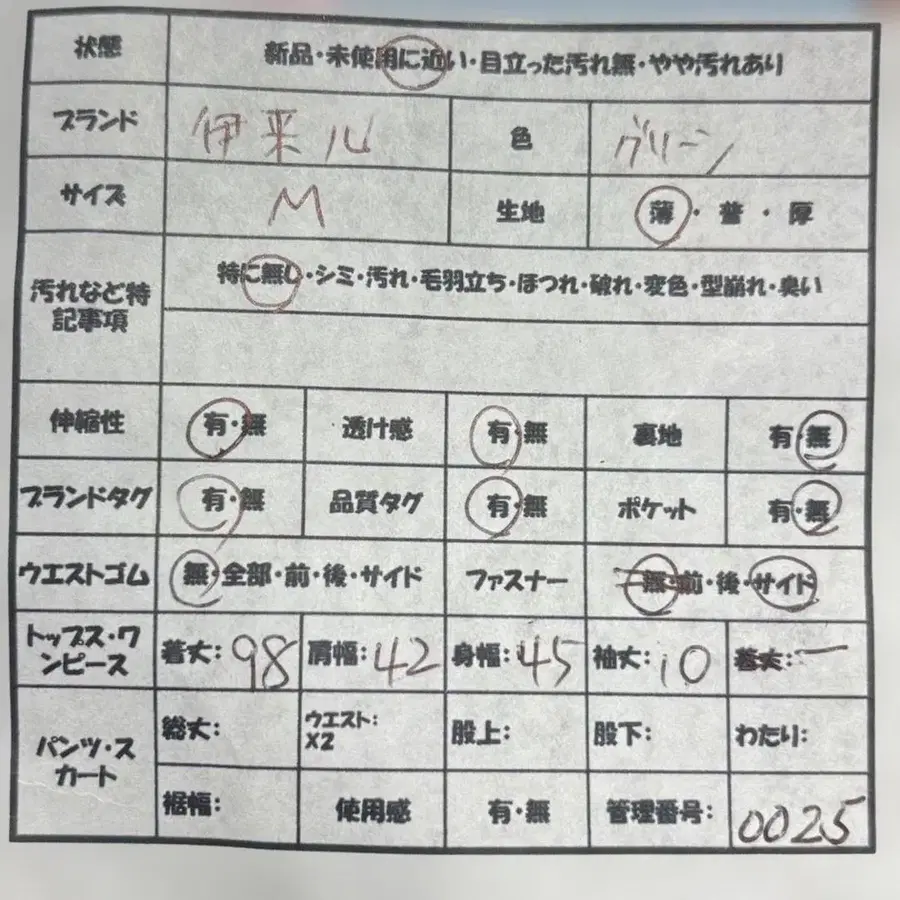 状態 新品・未使用に近い・目立った汚れ無・やや汚れあり
ブランド 伊来儿 色 グリーン
サイズ M 生地 薄・普・厚
汚れなど特記事項 特に無し・シミ・汚れ・毛羽立ち・ほつれ・破れ・変色・型崩れ・臭い
伸縮性 有・無 透け感 有・無 裏地 有・無
ブランドタグ 有・無 品質タグ 有・無 ポケット 有・無
ウエストゴム 無・全部・前・後・サイド ファスナー 無・前・後・サイド
トップス・ワンピース 着丈:98 肩幅:42 身幅:45 袖丈:10 着丈:ー
パンツ・スカート 総丈: ウエスト:X2 股上: 股下: わたり:
裾幅: 使用感 有・無 管理番号: 0025